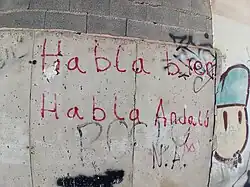 Habla bien
Habla Andaluz
N.A.